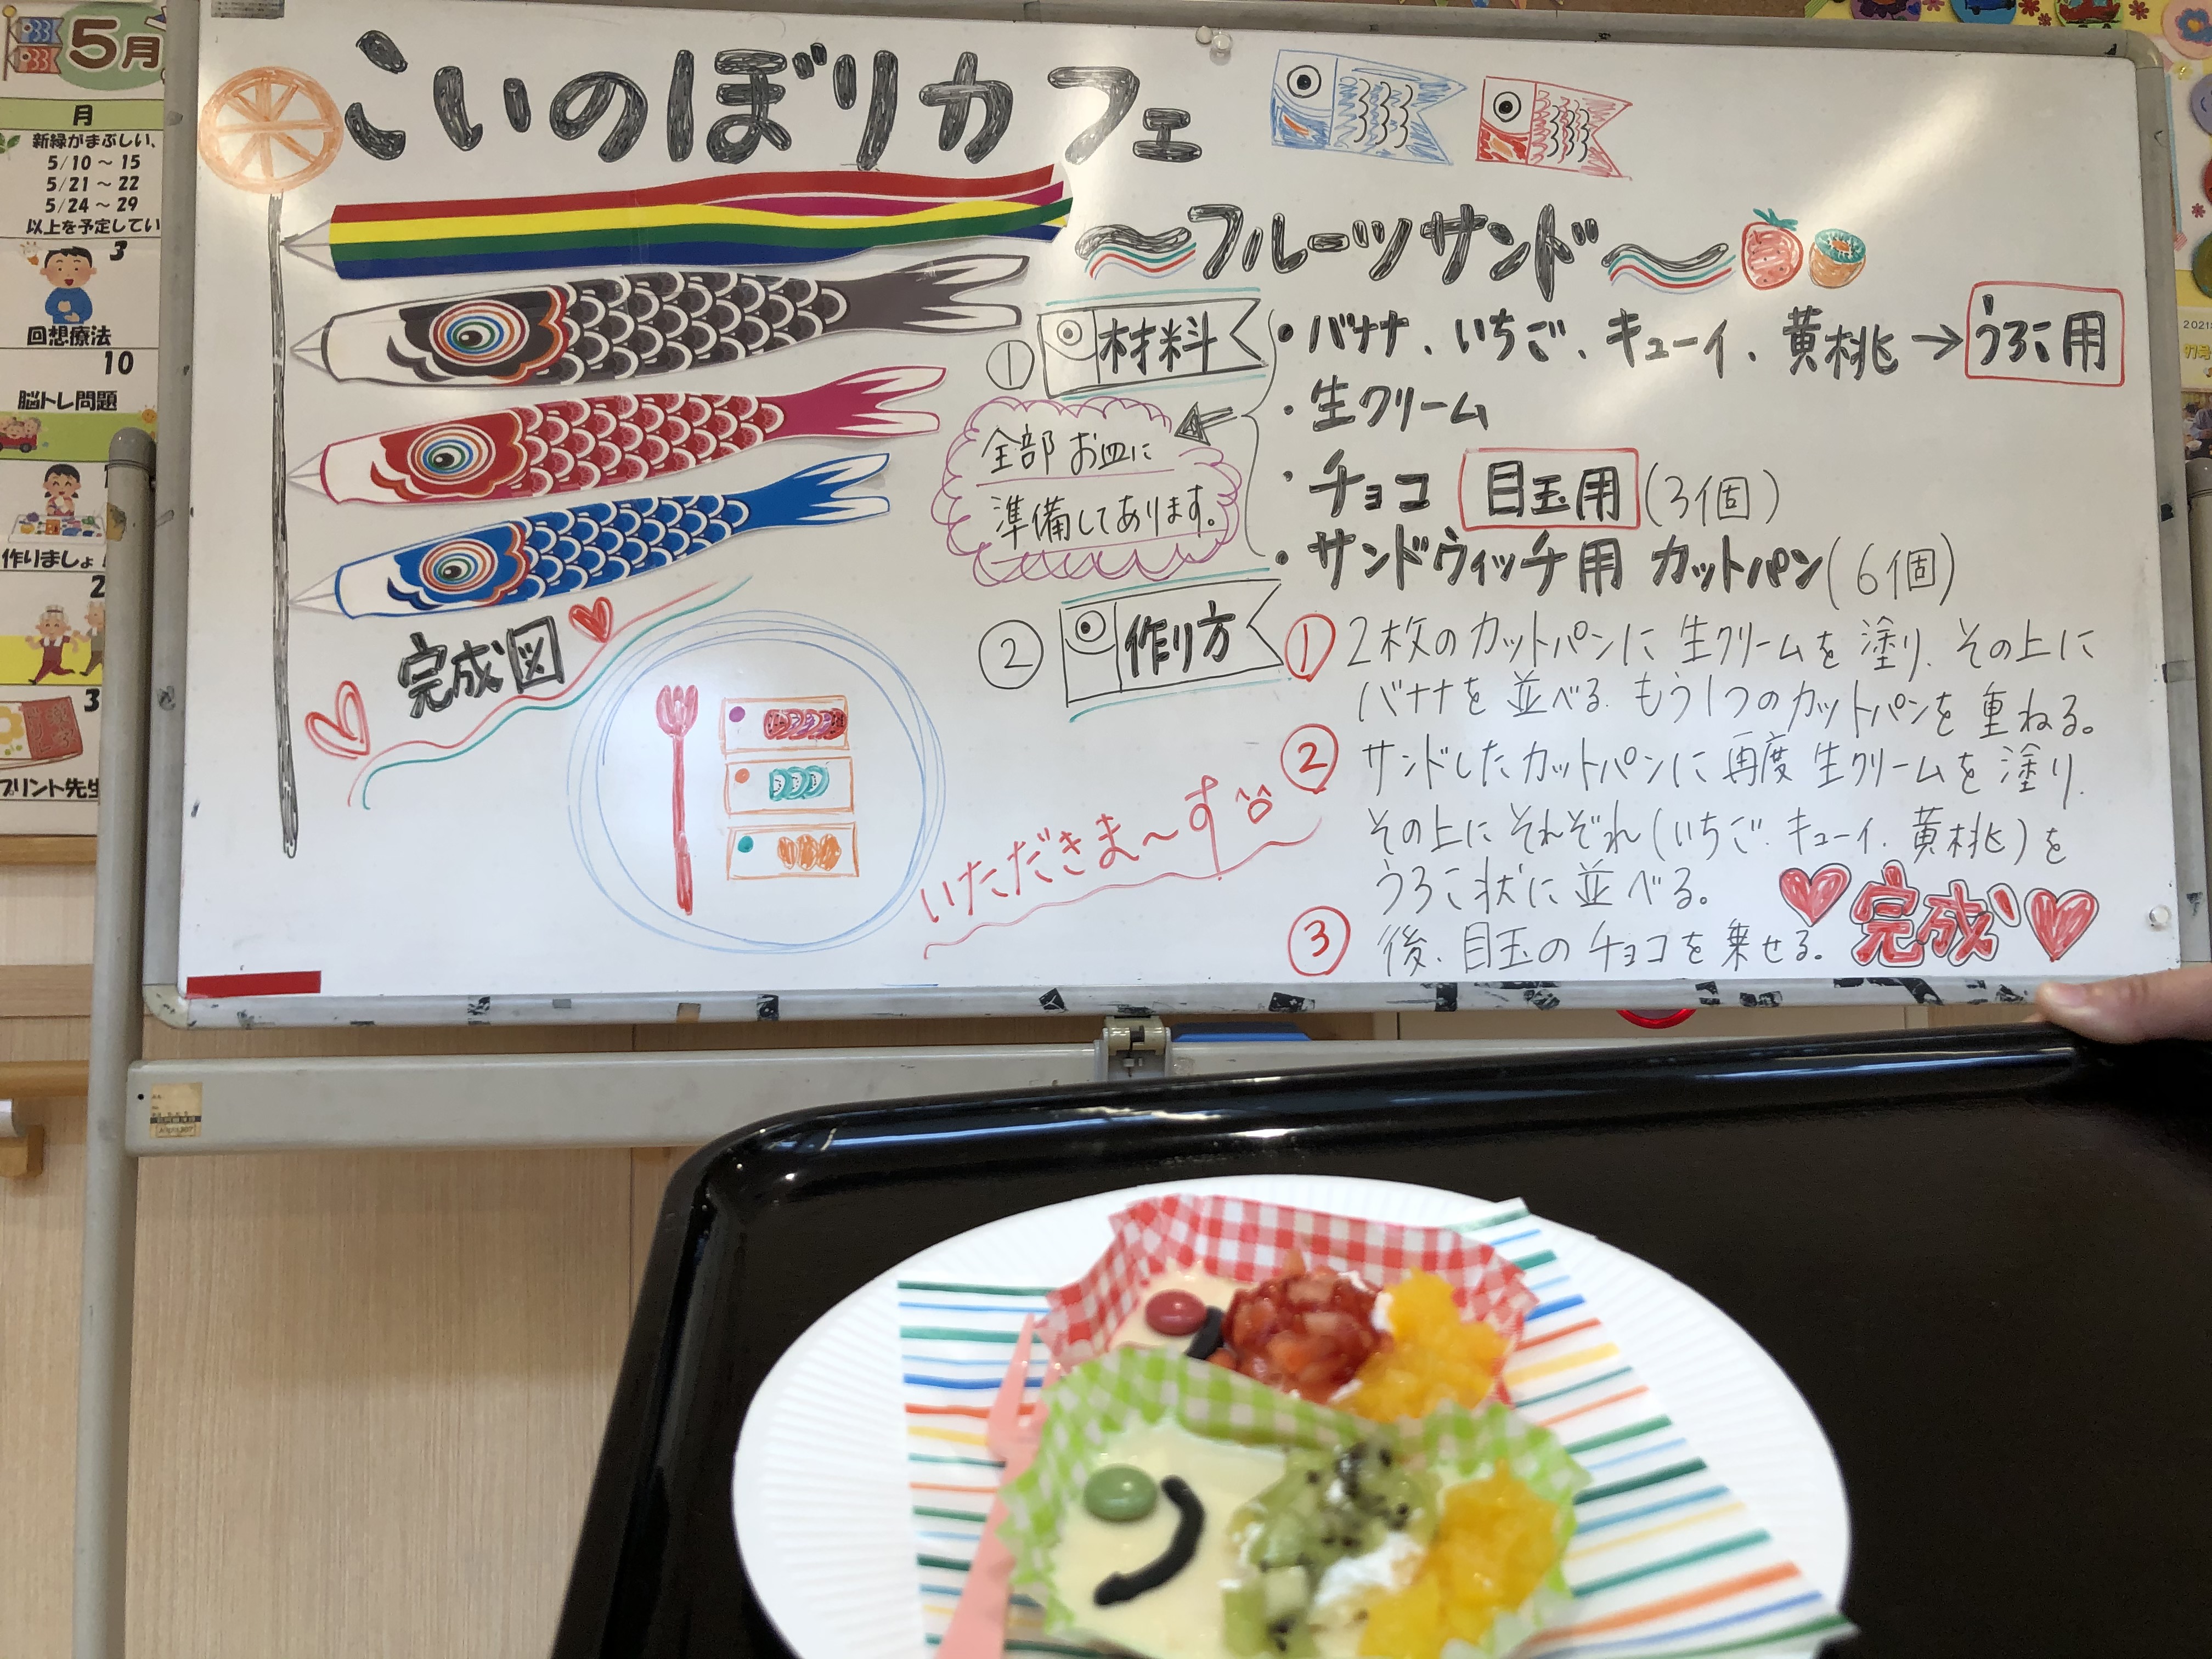 5月
月
新緑がまぶしい、
5/10 ～ 15
5/21 ～ 22
5/24 ～ 29
以上を予定してい
3
回想療法
10
脳トレ問題
作りましょ
2
3
プリント先生
こいのぼりカフェ
～フルーツサンド～
① 材料
・バナナ、いちご、キューイ、黄桃→うろこ用
・生クリーム
・チョコ 目玉用(3個)
・サンドウィッチ用 カットパン(6個)
全部 お皿に
準備してあります。
② 作り方
① 2枚のカットパンに 生クリームを 塗り、その上に
バナナを 並べる. もう1つのカットパンを 重ねる。
② サンドしたカットパンに 再度 生クリームを 塗り、
その上に それぞれ(いちご、キューイ、黄桃)を
うろこ状に 並べる。
③ 後、目玉の チョコを 乗せる。
完成
完成図
いただきま～す
2021